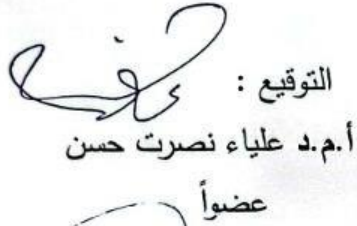 التوقيع :
أ.م.د علياء نصرت حسن
عضواً